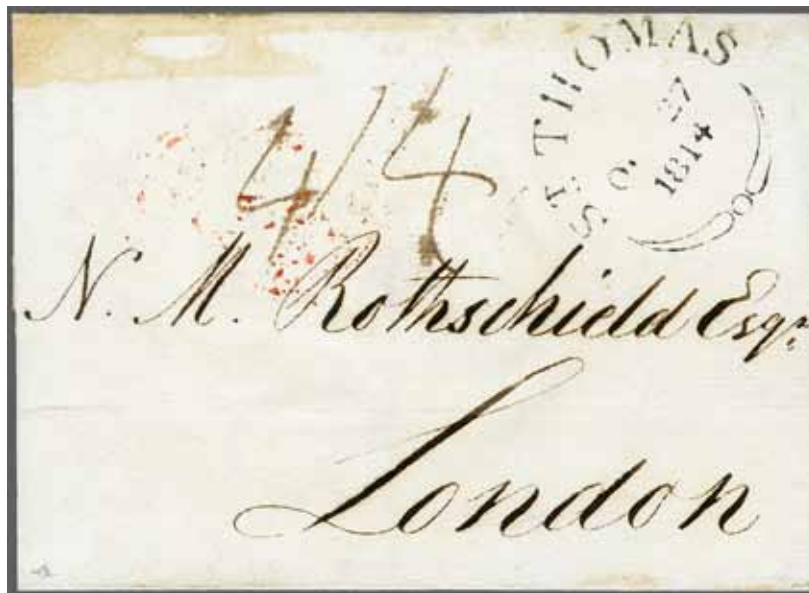 ST THOMAS
O. 27
1814
4/4
N. M. Rothschield Esqr.
London